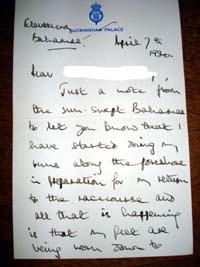 Eleuthera
Bahamas.
BUCKINGHAM PALACE
April 7th
Dear
Just a note from
the sun-swept Bahamas
to let you know that I
have started doing my
runs along the foreshore
in preparation for my return
to the racecourse and
all that is happening
is that my feet are
being worn down to